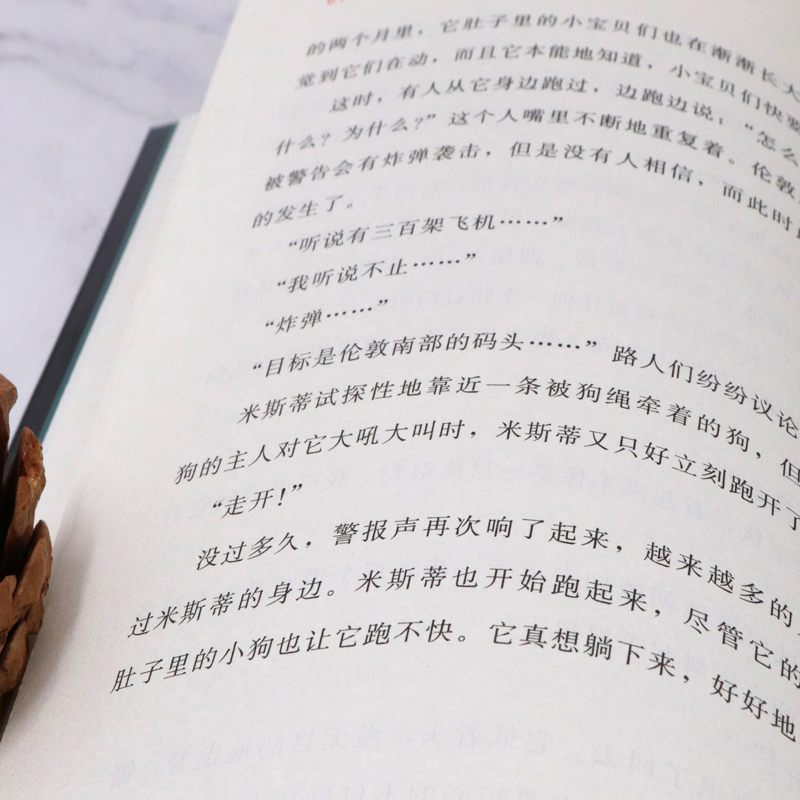 的两个月里，它肚子里的小宝贝们也在渐渐长大
觉到它们在动，而且它本能地知道，小宝贝们快要
这时，有人从它身边跑过，边跑边说：“怎么
什么？为什么？”这个人嘴里不断地重复着。伦敦
被警告会有炸弹袭击，但是没有人相信，而此时
的发生了。
“听说有三百架飞机……”
“我听说不止……”
“炸弹……”
“目标是伦敦南部的码头……”路人们纷纷议论
米斯蒂试探性地靠近一条被狗绳牵着的狗，但
狗的主人对它大吼大叫时，米斯蒂又只好立刻跑开了
“走开！”
没过多久，警报声再次响了起来，越来越多的
过米斯蒂的身边。米斯蒂也开始跑起来，尽管它的
肚子里的小狗也让它跑不快。它真想躺下来，好好地